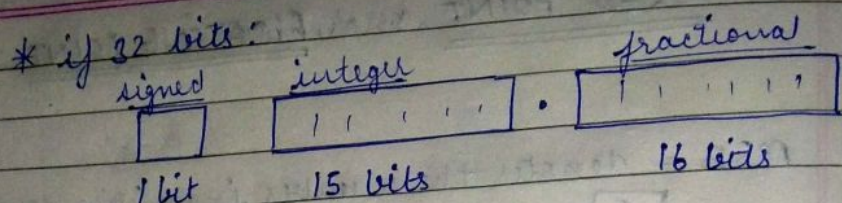 * if 32 bits:
signed integer fractional
.
1 bit 15 bits 16 bits